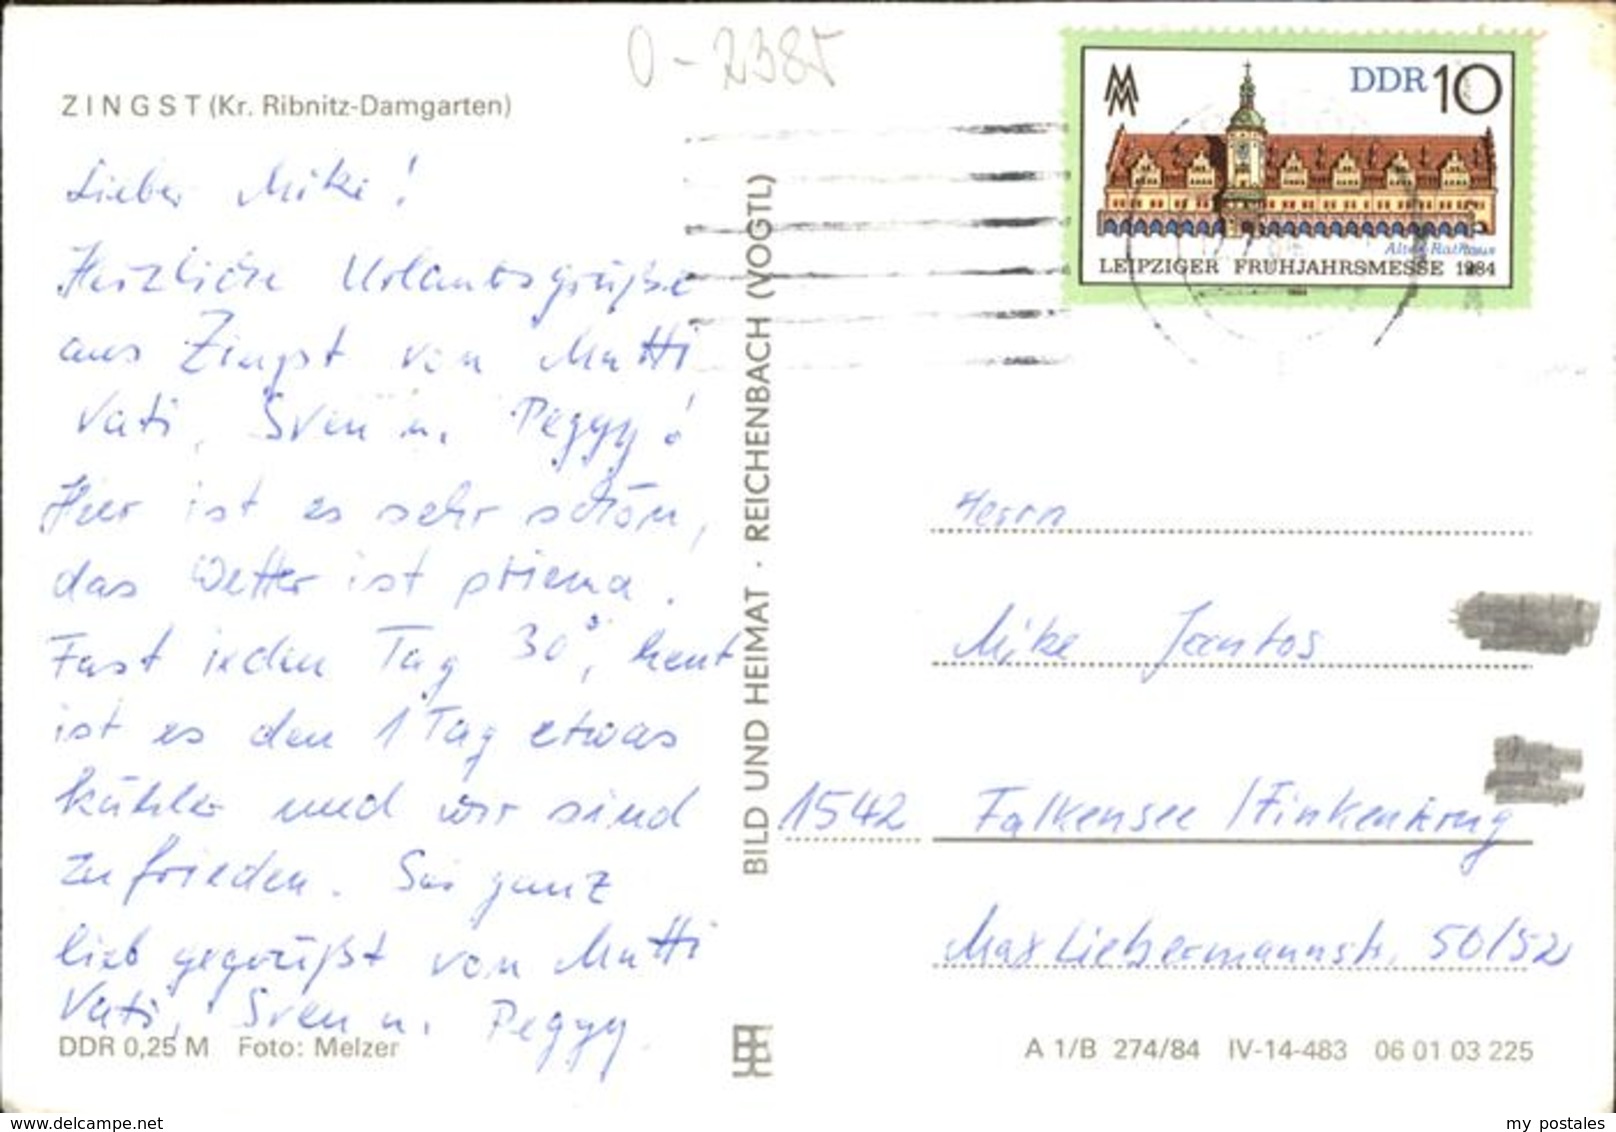 O-2385
ZINGST (Kr. Ribnitz-Damgarten)
Lieber Mike!
Herzliche Urlaubsgrüße
aus Zingst von Mutti
Vati, Sven u. Peggy!
Hier ist es sehr schön,
das Wetter ist priema.
Fast jeden Tag 30°, heut
ist es den 1 Tag etwas
kühler und wir sind
zufrieden. Sei ganz
lieb gegrüßt von Mutti
Vati, Sven u. Peggy.
DDR 0,25 M Foto: Melzer
BILD UND HEIMAT · REICHENBACH (VOGTL)
MM
DDR 10
Altes Rathaus
LEIPZIGER FRÜHJAHRSMESSE 1984
Herrn
Mike Jantos
1542 Falkensee / Finkenkrug
Max Liebermannstr. 50/52
A 1/B 274/84 IV-14-483 06 01 03 225
www.delcampe.net
my postales